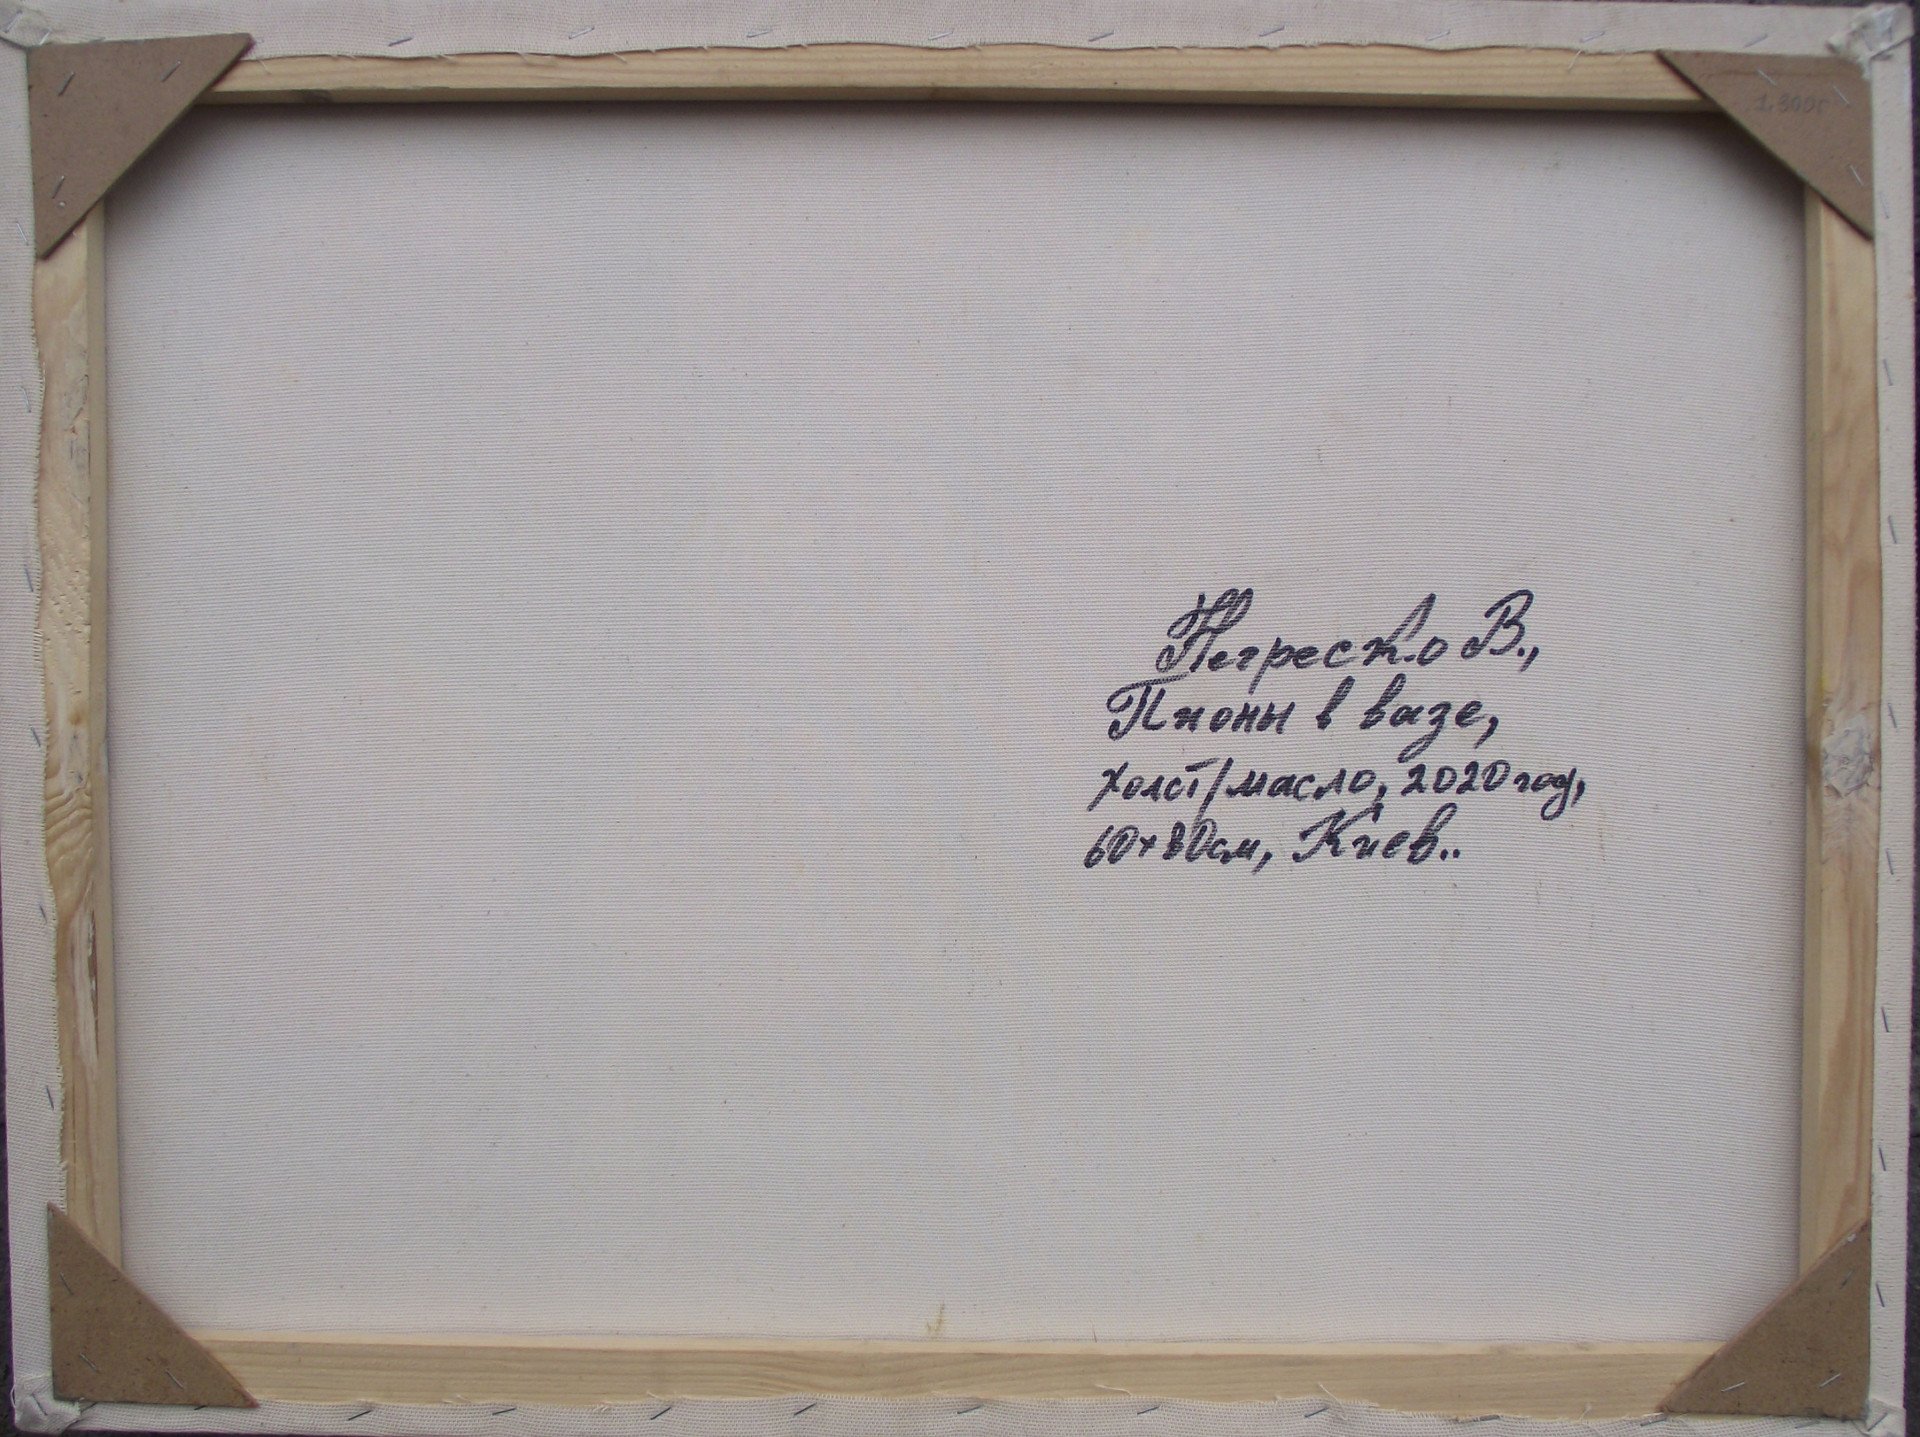 Негреско В.,
Пионы в вазе,
холст/масло, 2020 год,
60х80см, Киев..